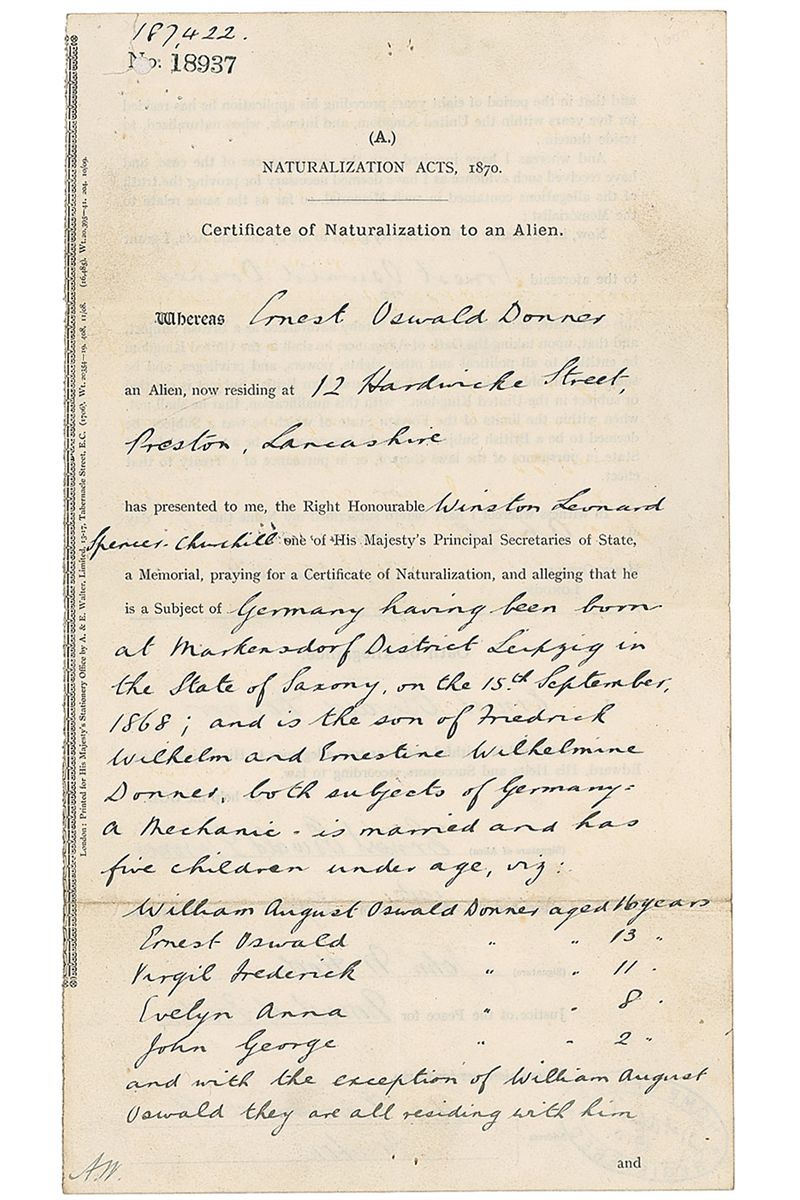 187,422.
No. 18937
(A.)
NATURALIZATION ACTS, 1870.
Certificate of Naturalization to an Alien.
Whereas Ernest Oswald Donner
an Alien, now residing at 12 Hardwicke Street,
Preston, Lancashire
has presented to me, the Right Honourable Winston Leonard
Spencer-Churchill one of His Majesty's Principal Secretaries of State,
a Memorial, praying for a Certificate of Naturalization, and alleging that he
is a Subject of Germany having been born
at Markensdorf District Leipzig in
the State of Saxony, on the 15th September,
1868; and is the son of Friedrick
Wilhelm and Ernestine Wilhelmine
Donner, both subjects of Germany-
a Mechanic - is married and has
five children under age, viz:
William August Oswald Donner aged 16 years
Ernest Oswald " " 13 "
Virgil Frederick " " 11 "
Evelyn Anna " " 8 "
John George " " 2 "
and with the exception of William August
Oswald they are all residing with him
and
A.W.
London: Printed for His Majesty's Stationery Office by A. & E. Walter, Limited, 13-17, Tabernacle Street, E.C.